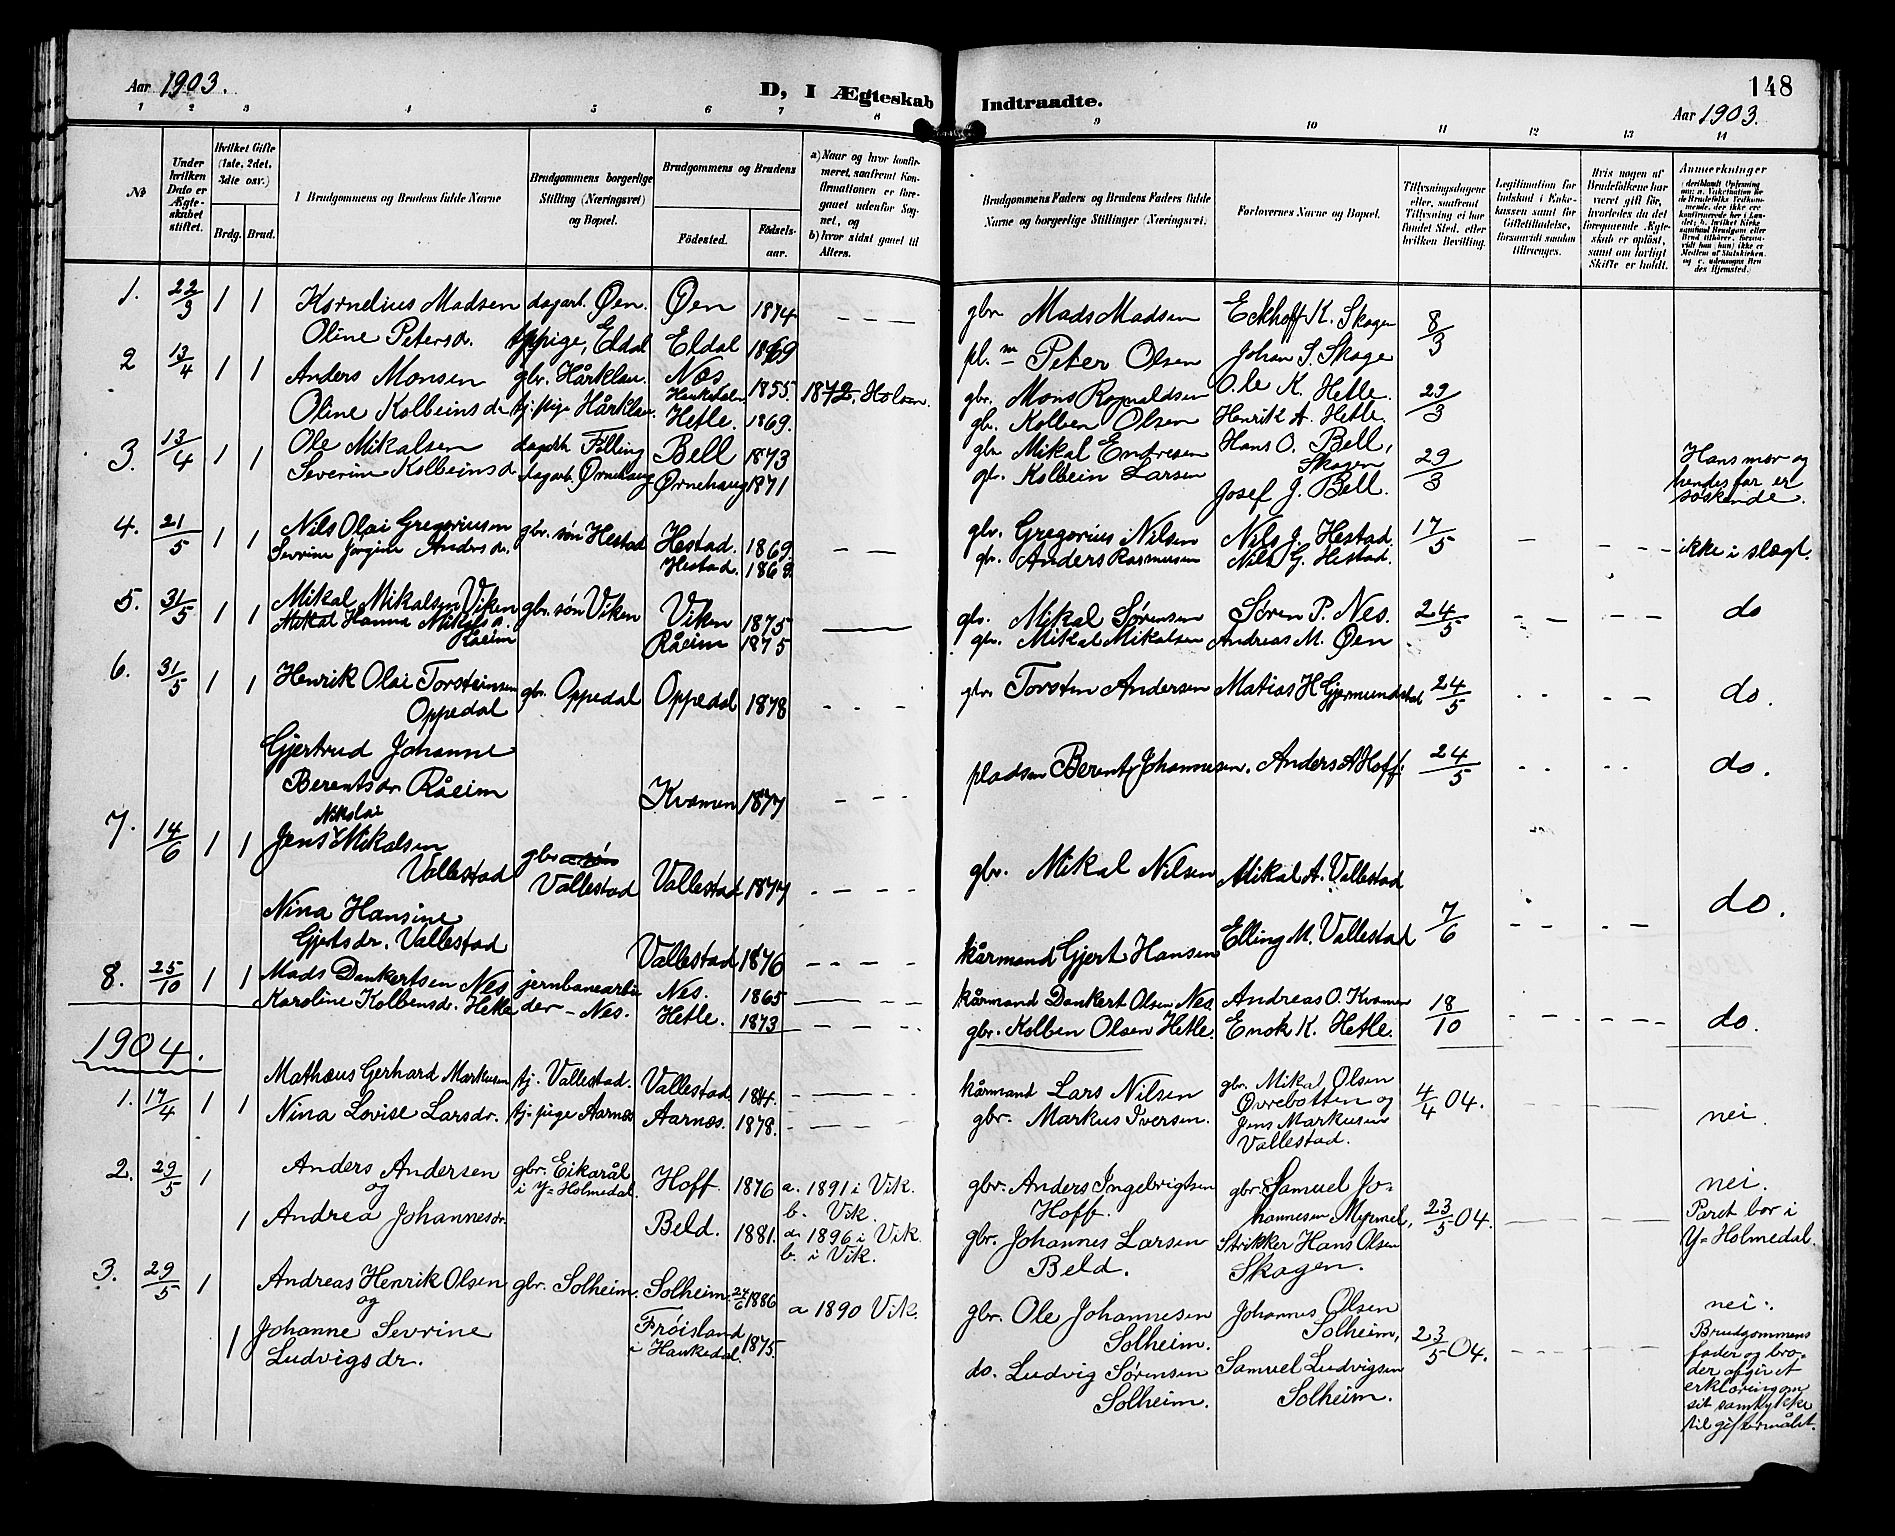 148
Aar 1903.
D, I Ægteskab Indtraadte.
Aar 1903.
1 2 3 4 5 6 7 8 9 10 11 12 13 14
No
Under hvilken Dato er Ægteskabet stiftet.
Hvilket Gifte (1ste, 2det, 3dte osv.)
Brdg. Brud.
Brudgommens og Brudens fulde Navne
Brudgommens borgerlige Stilling (Næringsvei) og Bopæl.
Brudgommens og Brudens
Fødested.
Fødselsaar.
a) Naar og hvor konfirmeret, saafremt Konfirmationen er foregaaet udenfor Sognet, og
b) hvor sidst gaaet til Alters.
Brudgommens Faders og Brudens Faders fulde Navne og borgerlige Stillinger (Næringsvei).
Forlovernes Navne og Bopæl.
Tillysningsdagene eller, saafremt Tillysning ei har fundet Sted, efter hvilken Bevilling.
Legitimation for Indskud i Enkekassen samt for Giftetilladelse, forsaavidt saadan tiltrænges.
Hvis nogen af Brudefolkene har været gift før, hvorledes da det foregaaende Ægteskab er opløst, samt om lovligt Skifte er holdt.
Anmærkninger
1. 22/3 1 1 Kornelius Madsen dagarb. Øen. Øen 1874 – – – gbr Mads Madsen Eckhoff K. Skagen 8/3
Oline Petersd. tjpige, Eldal Eldal 1869 pl.m Peter Olsen Johan S. Skage
2 13/4 1 1 Anders Monsen gbr. Hårklau. Nos Haukedalen 1855. 1872. Holsen. gbr. Mons Rognaldsen Ole K. Hetle. 29/3
Oline Kolbeinsdr. tj.pige Hårklau. Hetle. 1869. gbr. Kolben Olsen Henrik A. Hetle.
3. 13/4 1 1 Ole Mikalsen Fölling Bell 1873 gbr Mikal Endresen Hans O. Bell, Skagen 29/3 Hans mor og
Severine Kolbeinsd. dagarb. Ørnehaug Ørnehaug 1871 gbr. Kolbein Larsen Josef J. Bell. hendes far er
søskende.
4. 21/5 1 1 Nils Olai Gregoriusen gbr. søn Hestad Hestad. 1869. – – gbr. Gregorius Nilsen Nils J. Hestad. 17/5 – – – – ikke i slægt.
Sevrine Jörgine Andersdr. Hestad. 1868. gbr. Anders Rasmusen Nils G. Hestad.
5. 31/5 1 1 Mikal Mikalsen Viken gbr. søn Viken Viken 1875 gbr. Mikal Sørensen Søren P. Nes. 24/5 – – – – do
Mikal Hanna Mikalsd. Råeim Råeim 1875 gbr. Mikal Mikalsen Andreas M. Øen
6. 31/5 1 1 Henrik Olai Torsteinsen Oppedal gbr. Oppedal Oppedal 1878 – – – gbr. Torsten Andersen Matias H Gjermundstad 24/5 – – – – do.
Gjertrud Johanne
Berentsdr Råeim Kvamen 1877 – – – pladsm Berent Johannesen. Anders A Hoff. 24/5 – – – – do.
7. 14/6 1 1 Jens Nikolai Mikalsen
Vallestad gbr søn Vallestad Vallestad 1877 – – – – gbr. Mikal Nilsen Mikal A. Vallestad
Nina Hansine
Gjertsdr. Vallestad Vallestad 1876 – – – – kårmand Gjert Hansen Elling M. Vallestad 7/6 – – – – do.
8. 25/10 1 1 Mads Dankertsen Nes jernbanearbei Nes. 1865 kårmand Dankert Olsen Nes. Andreas O. Kvamen 18/10 – – – – do.
Karoline Kolbensdr. Hetle der – Nes. Hetle. 1873 – – – – gbr. Kolben Olsen Hetle. Enok K. Hetle.
1904.
1. 17/4 1 1 Mathæus Gerhard Markusen tj. Vallestad. Vallestad – – – kårmand Lars Nilsen gbr. Mikal Olsen
Øvrebotten og 4/4 04. – – – – nei.
Nina Lovise Larsdr. tj-pige Aarnæs Aarnæs. 1878. – – – gbr. Markus Iversen. Jens Markusen
Vallestad.
2. 29/5 1 Anders Andersen gbr. Eikarål Hoff. 1876 a. 1891 i Vik. gbr. Anders Ingebrigtsen gbr. Samuel Jo- nei.
og i Y= Holmedal. b. Vik. Hoff. hannesen Myrmel, 23/5 04. – – – – Paret bor i
1 Andrea Johannesdr. Beld. 1881. a. 1896 i Vik. gbr. Johannes Larsen Strikker Hans Olsen Y= Holmedal.
b. i Vik. Beld. Skagen.
3. 29/5 1 Andreas Henrik Olsen gbr. Solheim. Solheim. 1886 a 1890 Vik. gbr. Ole Johannesen Johannes Olsen nei.
og Solheim. Solheim, 23/5 04. – – – – Brudgommens
1 Johanne Sevrine Frøisland fader og bro-
Ludvigsdr. i Haukedal. 1875. do. Ludvig Sørensen Samuel Ludvigsen der afgivet
Solheim. Solheim. erklæring om
sit samtykke
til giftermålet.